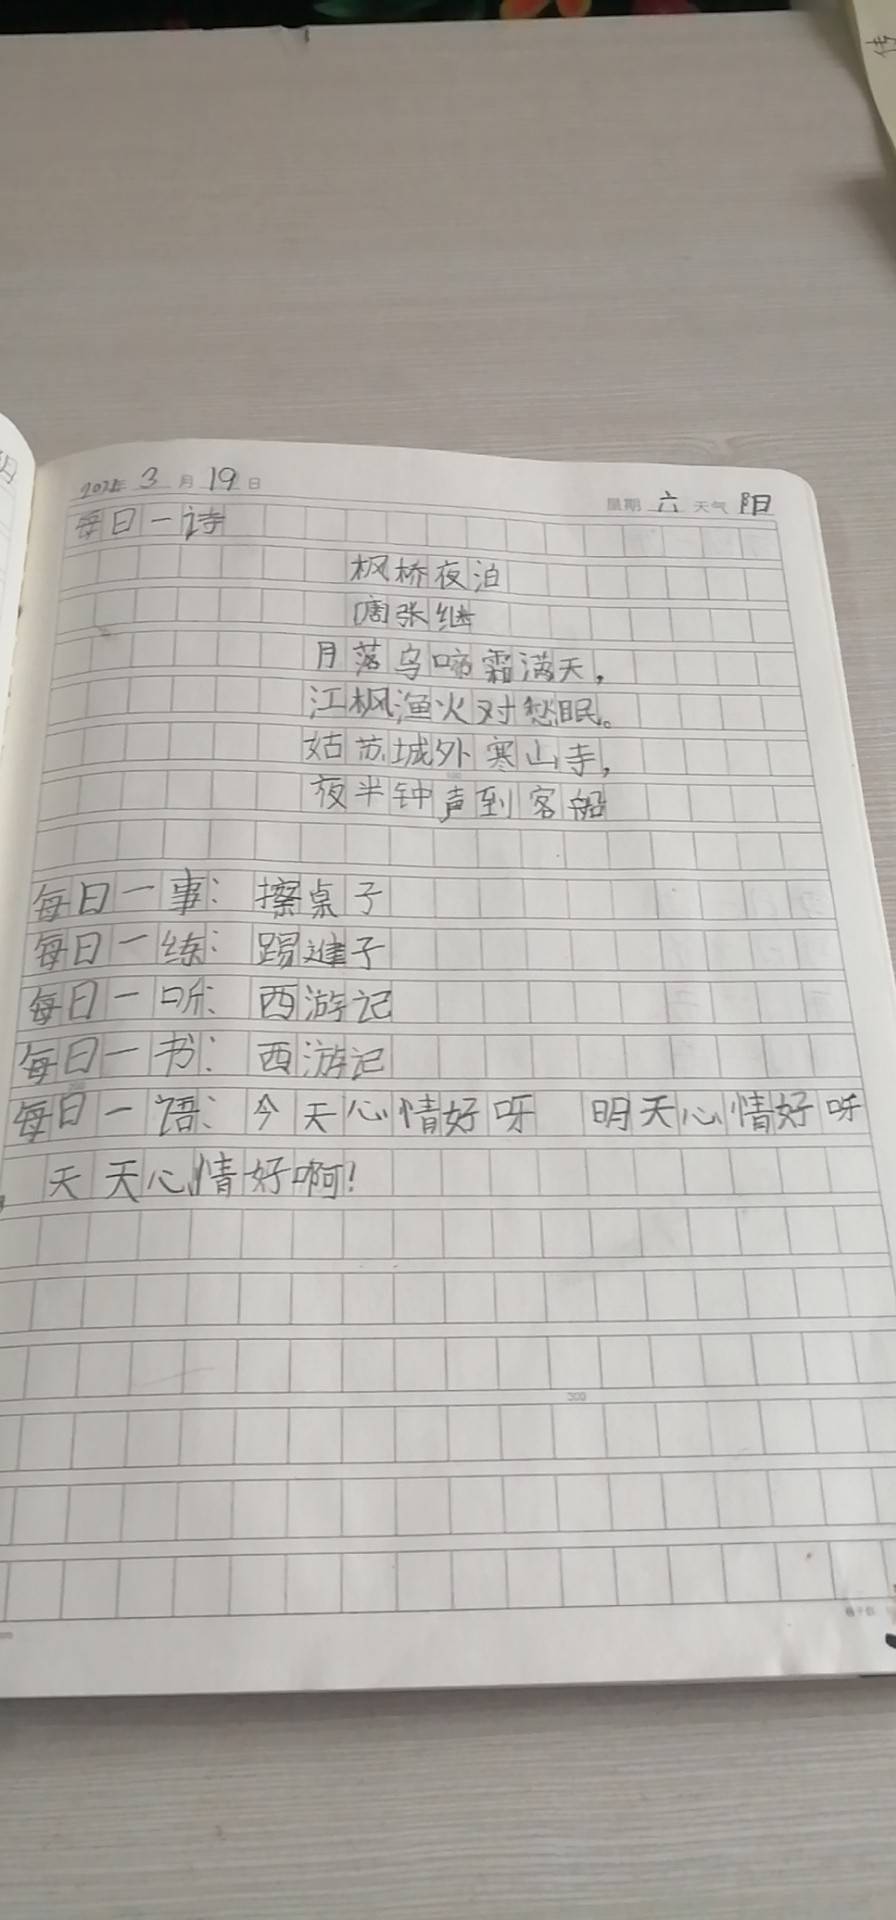 3月19日 星期六 天气阳
每日一诗
枫桥夜泊
唐张继
月落乌啼霜满天，
江枫渔火对愁眠。
姑苏城外寒山寺，
夜半钟声到客船
每日一事：擦桌子
每日一练：踢毽子
每日一听：西游记
每日一书：西游记
每日一语：今天心情好呀 明天心情好呀
天天心情好啊！
300